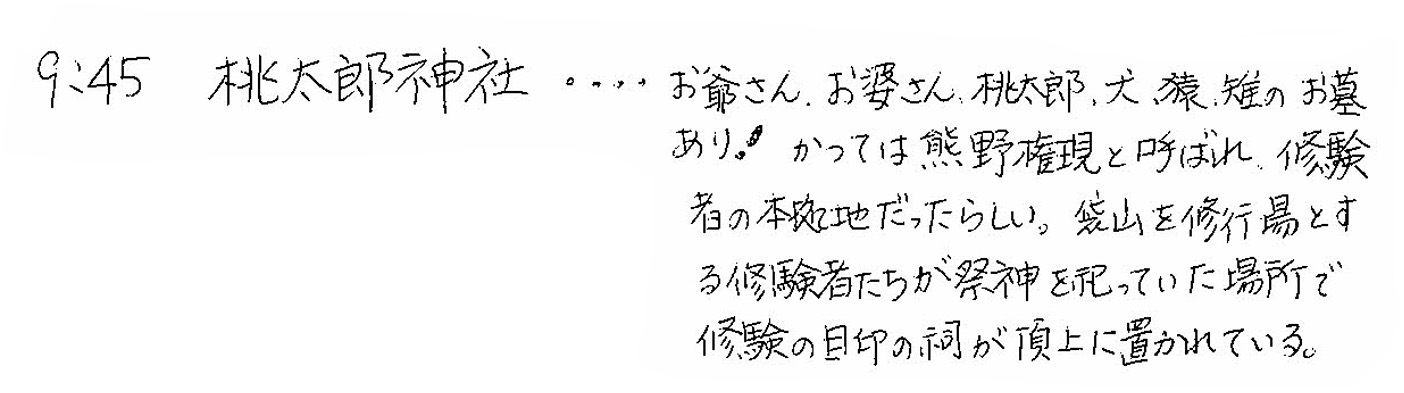 9:45 桃太郎神社 ・・・・ お爺さん、お婆さん、桃太郎、犬、猿、雉のお墓
あり! かつては熊野権現と呼ばれ、修験
者の本拠地だったらしい。袋山を修行場とす
る修験者たちが祭神を祀っていた場所で
修験の目印の祠が頂上に置かれている。